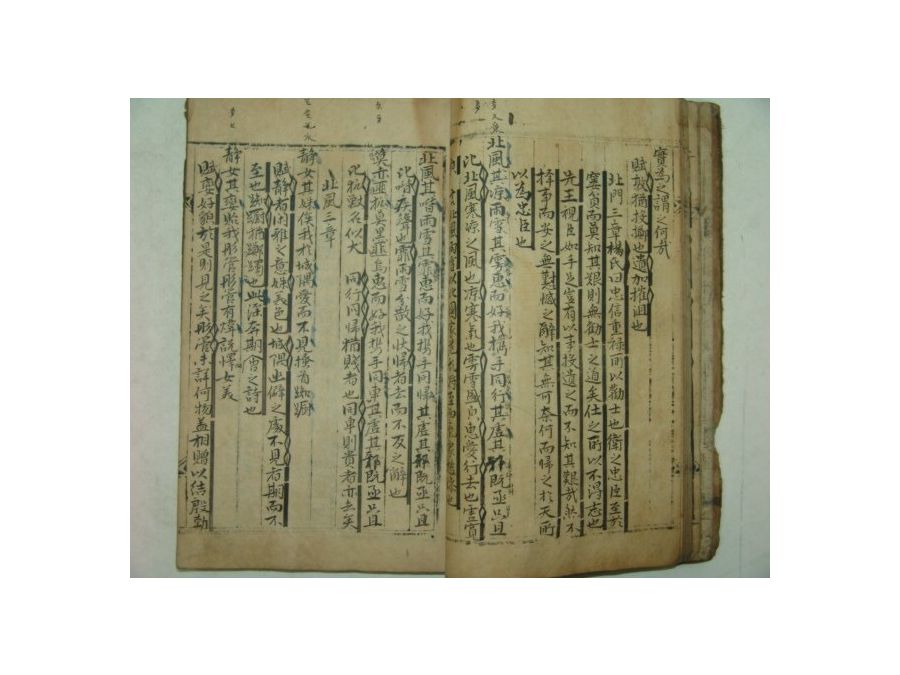 實為之謂之何哉
賦敦猶投擲也遺加摧沮也
北門三章楊氏曰忠信重祿所以勸士也衛之忠臣至於
窶貧而莫知其艱則無勸士之道矣仕之所以不得志也
先王視臣如手足豈有以事投遺之而不知其艱哉然不
擇事而安之無懟憾之辭知其無可奈何而歸之於天所
以為忠臣也
北風其涼雨雪其雱惠而好我携手同行其虛其邪既亟只且
比北風寒涼之風也涼寒氣也雱雪盛皃惠愛行去也虛寬
北風其喈雨雪其霏惠而好我携手同歸其虛其邪既亟只且
比喈疾聲也霏雨雪分散之狀歸者去而不反之辭也
莫赤匪狐莫黑匪烏惠而好我携手同車其虛其邪既亟只且
比狐獸名似犬 同行同歸猶賤者也同車則貴者亦去矣
北風三章
静女其姝俟我於城隅愛而不見搔首踟躕
賦静者閑雅之意姝美色也城隅幽僻之處不見者期而不
至也踟躕猶躑躅也此淫奔期會之詩也
静女其孌貽我彤管彤管有煒說懌女美
賦孌好皃於是則見之矣彤管未詳何物盖相贈以結殷勤